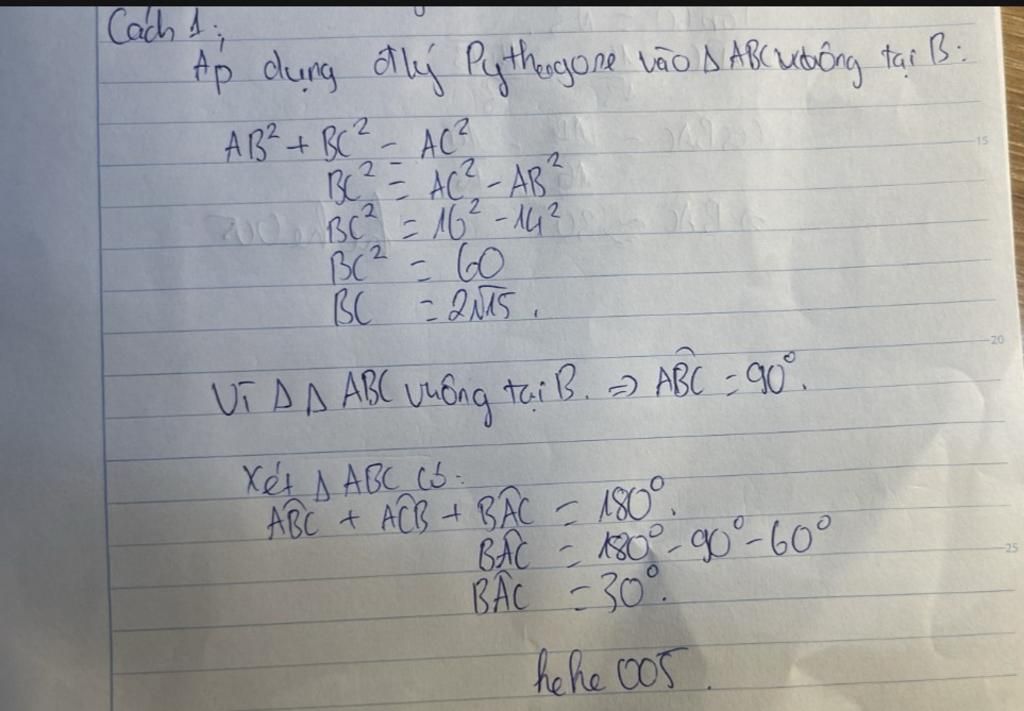 Cách 1:
Áp dụng đlý Pytheogore vào Δ ABC vuông tại B:
AB² + BC² = AC²
BC² = AC² - AB²
BC² = 16² - 14²
BC² = 60
BC = 2√15.
Vì Δ Δ ABC vuông tại B. ⇒ ABĈ = 90°.
Xét Δ ABC có:
ABĈ + ACB̂ + BAĈ = 180°.
BAĈ = 180° - 90° - 60°
BAĈ = 30°.
hehe 005.
15
20
25